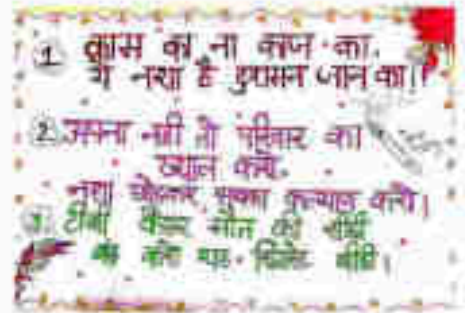 1. काम का ना काज का.
ये नशा है दुश्मन जान का।।
2. अपना नही तो परिवार का
ख्याल करो.
नशा छोड़कर सबका कल्याण करो।
3. टीबी कैंसर मौत की सीढ़ी
बीड़ी।